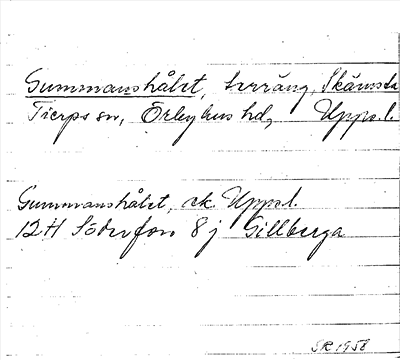 Gummanshålet, terräng, Skämsta
Tierps sn, Örbyhus hd, Upps. l.
Gummanshålet, ek. Upps. l.
12 H Söderfors 8 j Gillberga
SR 1958